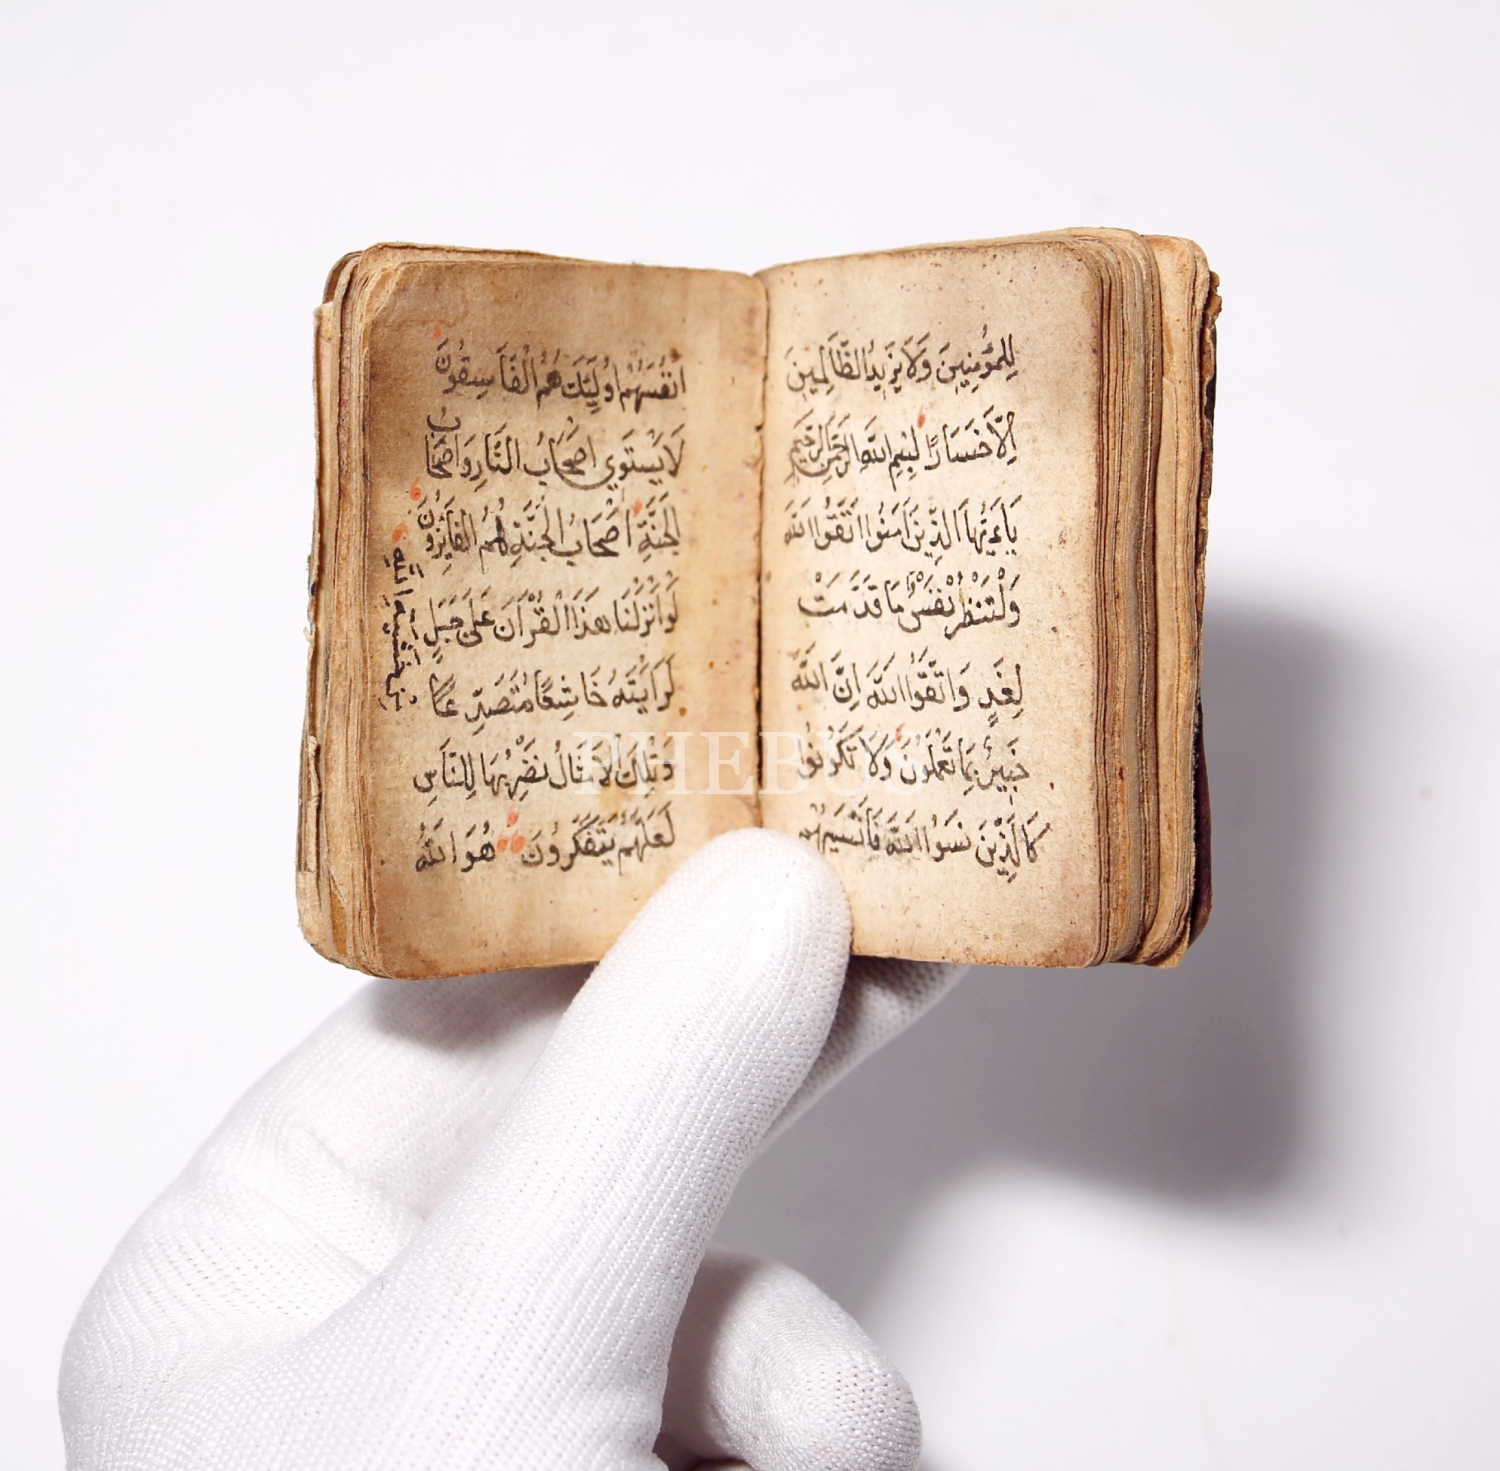 للمؤمنين ولا يزيد الظالمين
الا خسارا بسم الله الرحمن الرحيم
ياءيها الذين امنوا اتقوا الله
ولتنظر نفس ما قدمت
لغد واتقوا الله ان الله
خبير بما تعملون ولا تكونوا
كالذين نسوا الله فانسيهم
انفسهم اولئك هم الفاسقون
لا يستوي اصحاب النار واصحاب
الجنة اصحاب الجنة هم الفائزون
لو انزلنا هذا القران على جبل
لرايته خاشعا متصدعا
من خشية الله
وتلك الامثال نضربها للناس
لعلهم يتفكرون هو الله
PHEBUS